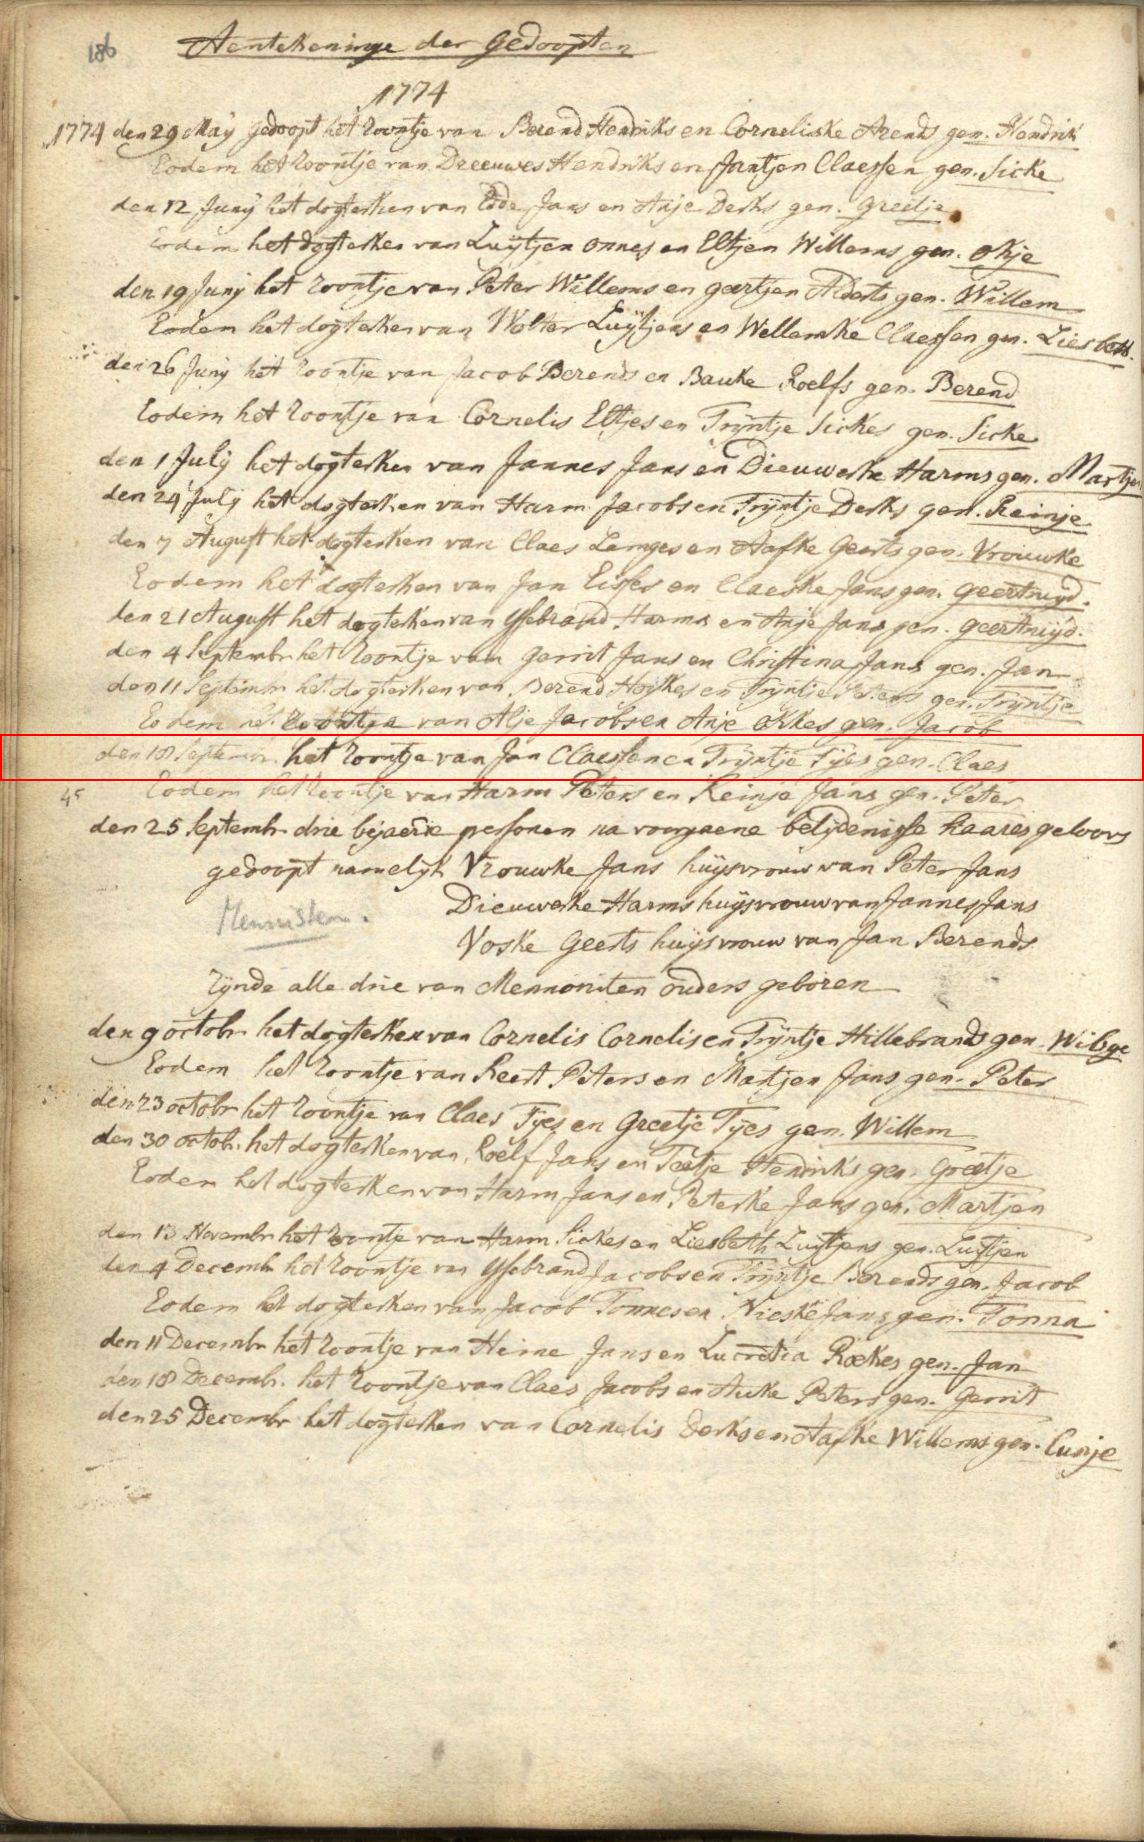 186
Aentekeninge der Gedoopten
1774
1774 den 29 Maÿ gedoopt het zoontje van Berend Hendriks en Corneliske Arends gen. Hendrik
Eodem het zoontje van Dreeuwes Hendriks en Jantjen Claessen gen. Sicke
den 12 Junÿ het dogterken van Ede Jans en Anje Derks gen. Greetje
Eodem het dogterken van Luÿtjen Onnes en Eltjen Willems gen. Okje
den 19 Junÿ het zoontje van Peter Willems en geertjen Alderts gen. Willem
Eodem het dogterken van Wolter Luÿtjens en Wellemke Claessen gen. Liesbeth
den 26 Junÿ het zoontje van Jacob Berends en Bauke Roelfs gen. Berend
Eodem het zoontje van Cornelis Eltjes en Trÿntje Sickes gen. Sicke
den 1 Julÿ het dogterken van Jannes Jans en Dieuwerke Harms gen. Martjen
den 24 Julÿ het dogterken van Harm Jacobs en Trÿntje Derks gen. Reinje
den 7 August het dogterken van Claes Lamges en Aafke Geerts gen. Vrouwke
Eodem het dogterken van Jan Eisses en Claeske Jans gen. geertruÿd.
den 21 August het dogterken van Ysebrand Harms en Anje Jans gen. geertruÿd.
den 4 Septembr het zoontje van Gerrit Jans en Christina Jans gen. Jan
den 11 Septembr het dogterken van Berend Hoikes en Trÿntje Peters gen. Trÿntje
Eodem het zoontje van Alje Jacobs en Anje Okkes gen. Jacob
den 18 Septembr. het zoontje van Jan Claessen en Trÿntje Tÿes gen. Claes
45 Eodem het zoontje van Harm Peters en Reinje Jans gen. Peter
den 25 Septembr drie bejaerde personen na voorgaene belÿdenisse haares geloovs
gedoopt namelÿk Vrouwke Jans huÿsvrouw van Peter Jans
Dieuwerke Harms huÿsvrouw van Jannes Jans
Mennisten.
Voske Geerts huÿsvrouw van Jan Berends
zÿnde alle drie van Mennoniten ouders geboren
den 9 octobr het dogterken van Cornelis Cornelis en Trÿntje Hillebrands gen. Wibge
Eodem het zoontje van Reert Peters en Martjen Jans gen. Peter
den 23 octobr het zoontje van Claes Tÿes en Greetje Tÿes gen. Willem
den 30 octob. het dogterken van Roelf Jans en Teetje Hendriks gen. Greetje
Eodem het dogterken van Harm Jans en Peterke Jans gen. Martjen
den 13 Novembr het zoontje van Harm Sickes en Liesbeth Luÿtjens gen. Luÿtjen
den 4 Decemb het zoontje van Ysebrand Jacobs en Trÿntje Berends gen. Jacob
Eodem het dogterken van Jacob Tonnes en Nieske Jans gen. Tonna
den 11 Decembr het zoontje van Heine Jans en Lucretia Rokes gen. Jan
den 18 Decembr. het zoontje van Claes Jacobs en Auke Peters gen. Gerrit
den 25 Decembr het dogterken van Cornelis Derks en Aafke Willems gen. Cunje